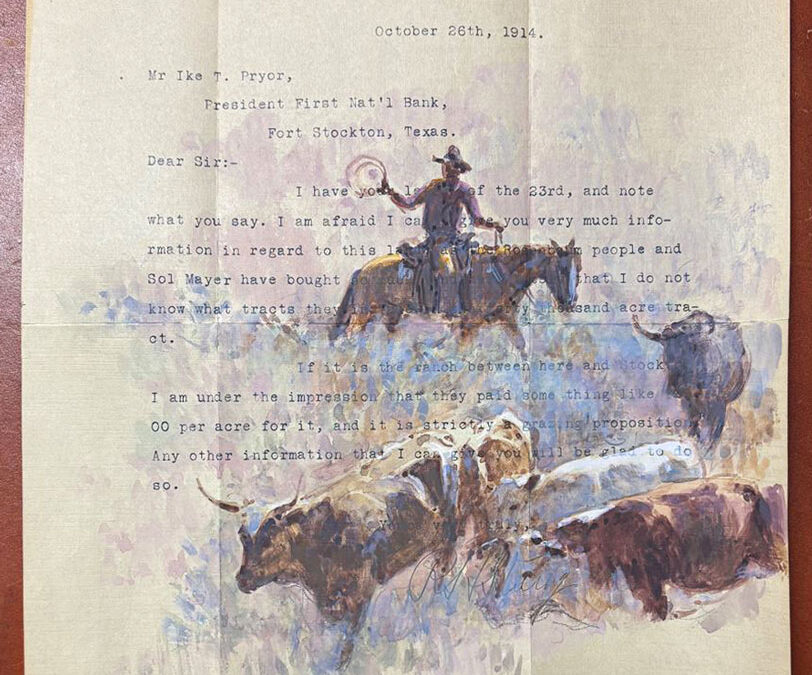 October 26th, 1914.
Mr Ike T. Pryor,
President First Nat'l Bank,
Fort Stockton, Texas.
Dear Sir:-
I have your of the 23rd, and note
what you say. I am afraid I can give you very much info-
rmation in regard to this people and
Sol Mayer have bought that I do not
know what tracts they thousand acre tra-
ct.
If it is the ranch between here and Stock
I am under the impression that they paid some thing like
00 per acre for it, and it is strictly a grazing proposition
Any other information that I can give you will be glad to do
so.